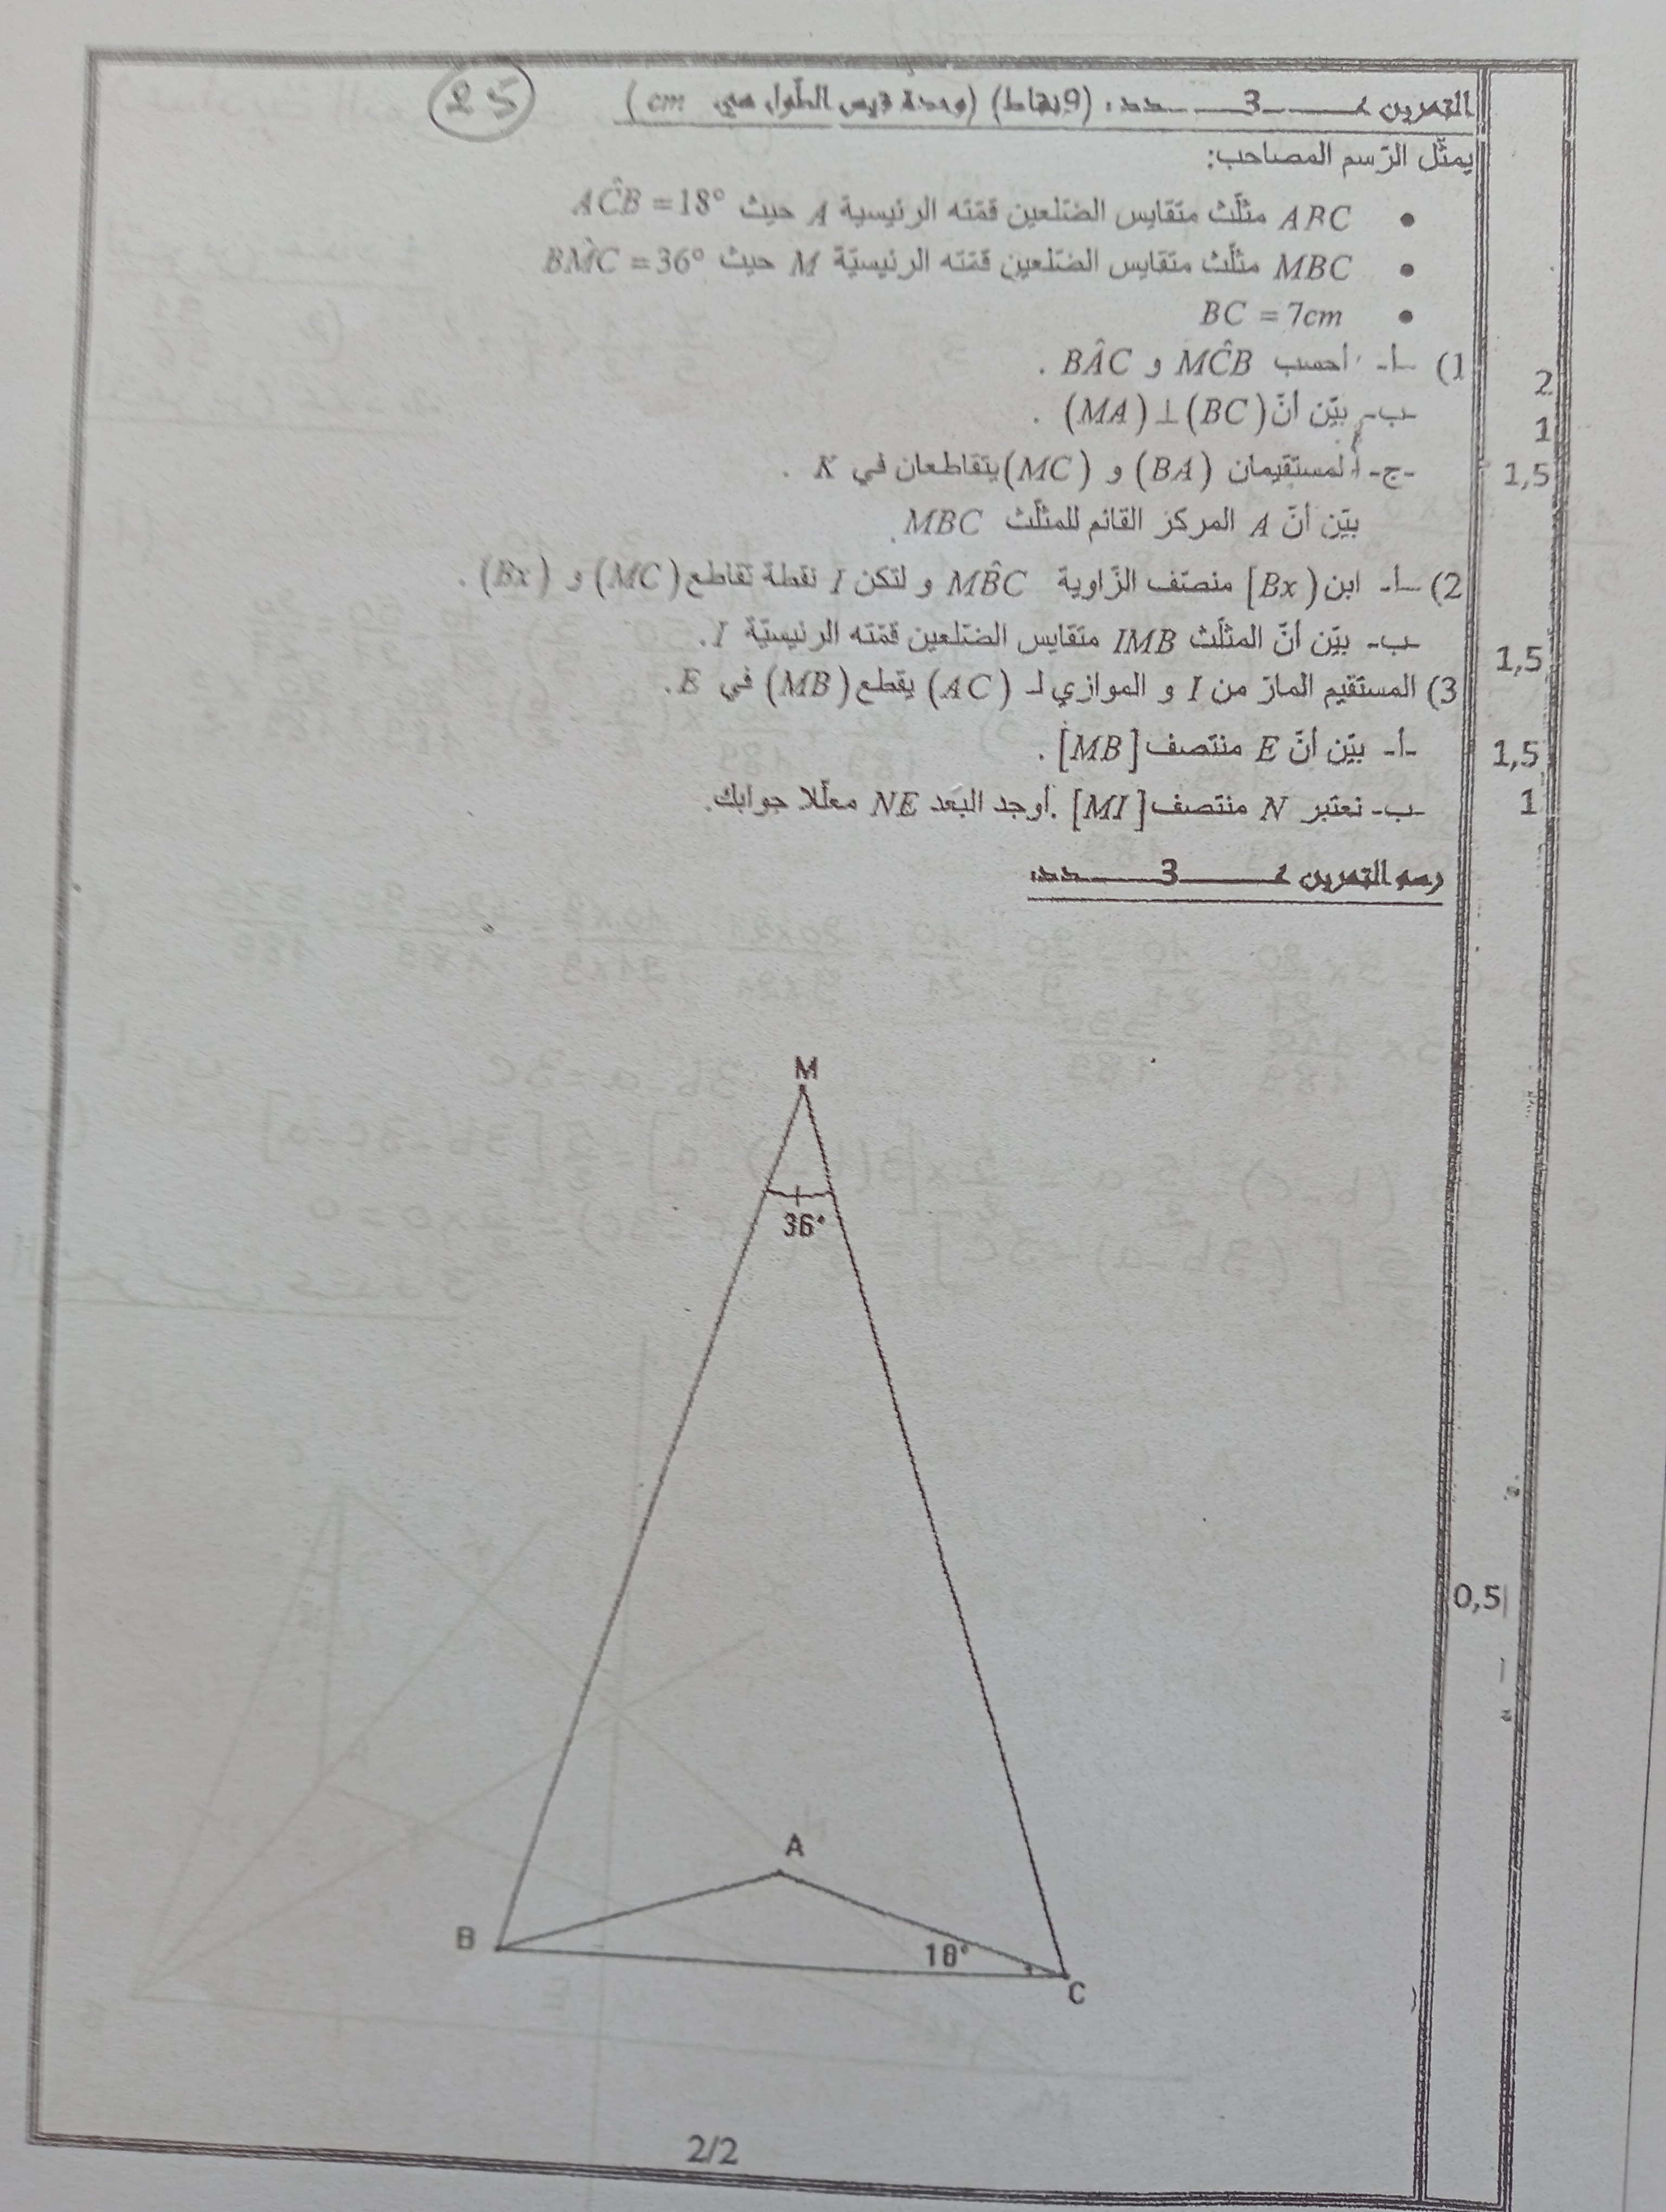 التمرين عــــ3ــــدد: (9 نقاط) (وحدة قيس الطول هي cm)
25
يمثّل الرّسم المصاحب:
• ABC مثلّث متقايس الضّلعين قمّته الرئيسية A حيث AĈB = 18°
• MBC مثلّث متقايس الضّلعين قمّته الرئيسيّة M حيث BM̂C = 36°
• BC = 7cm
1) -أ- أحسب MĈB و BÂC . 2
-ب- بيّن أنّ (MA) ⊥ (BC) . 1
-ج- المستقيمان (BA) و (MC) يتقاطعان في K . 1,5
بيّن أنّ A المركز القائم للمثلّث MBC .
2) -أ- ابن [Bx) منصّف الزّاوية MB̂C و لتكن I نقطة تقاطع (MC) و (Bx) .
-ب- بيّن أنّ المثلّث IMB متقايس الضّلعين قمّته الرئيسيّة I . 1,5
3) المستقيم المارّ من I و الموازي لـ (AC) يقطع (MB) في E .
-أ- بيّن أنّ E منتصف [MB] . 1,5
-ب- نعتبر N منتصف [MI] . أوجد البعد NE معلّلا جوابك. 1
رسم التمرين عــــ3ــــدد:
M
36°
0,5
A
B
18°
C
2/2